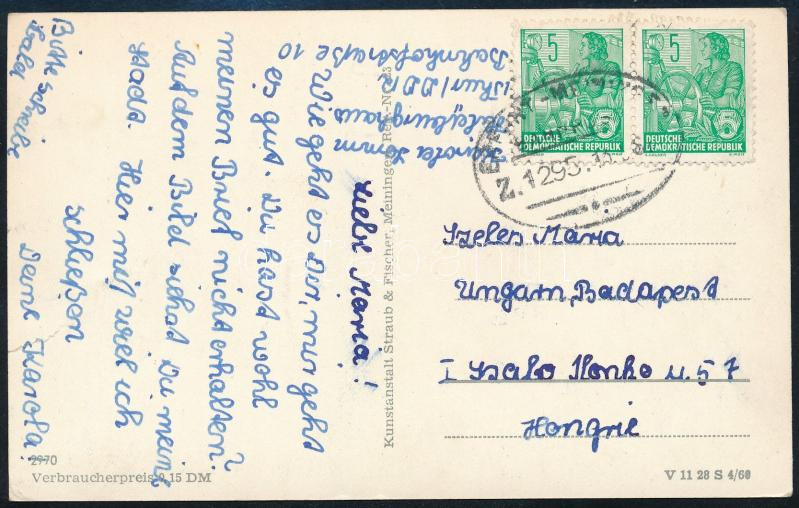 Liebe Maria!
Wie geht es Dir, mir geht
es gut. Du hast wohl
meinen Brief nicht erhalten?
Auf dem Bild siehst Du meine
Stadt. Hier muß will ich
schließen
Deine Karola.
Bitte schreibe
bald
Karola
Thür / DDR
Bahnhofstraße 10
5
DEUTSCHE
DEMOKRATISCHE REPUBLIK
5
DEUTSCHE
DEMOKRATISCHE REPUBLIK
Z. 1295
Szeles Mária
Ungarn, Badapest
I Iszabo Ilonka u. 57
Hongrie
Kunstanstalt Straub & Fischer, Meiningen
2970
Verbraucherpreis 0,15 DM
V 11 28 S 4/60